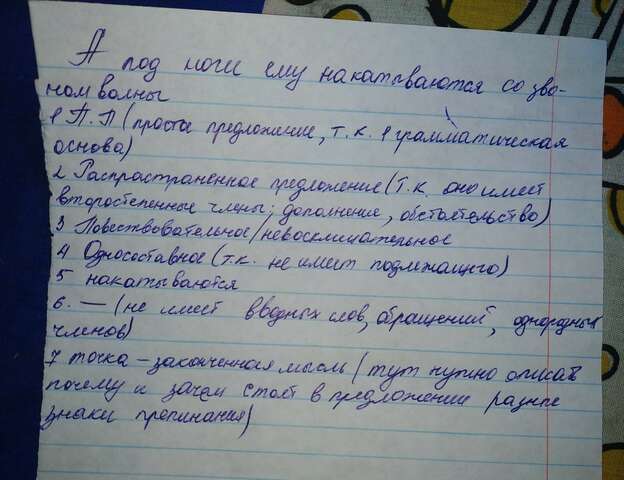 А под ноги ему накатываются со зво-
ном волны
1 П.П (проста предложение, т.к. 1 грамматическая
основа)
2 Распространенное предложение (т.к. оно имеет
второстепенные члены; дополнение, обстоятельство)
3 Повествовательное/невосклицательное
4 Односоставное (т.к. не имеет подлежащего)
5 накатываются
6. — (не имеет вводных слов, обращений, однородных
членов)
7 точка – законченная мысль (тут нужно описать
почему и зачем стоят в предложении разные
знаки препинания)